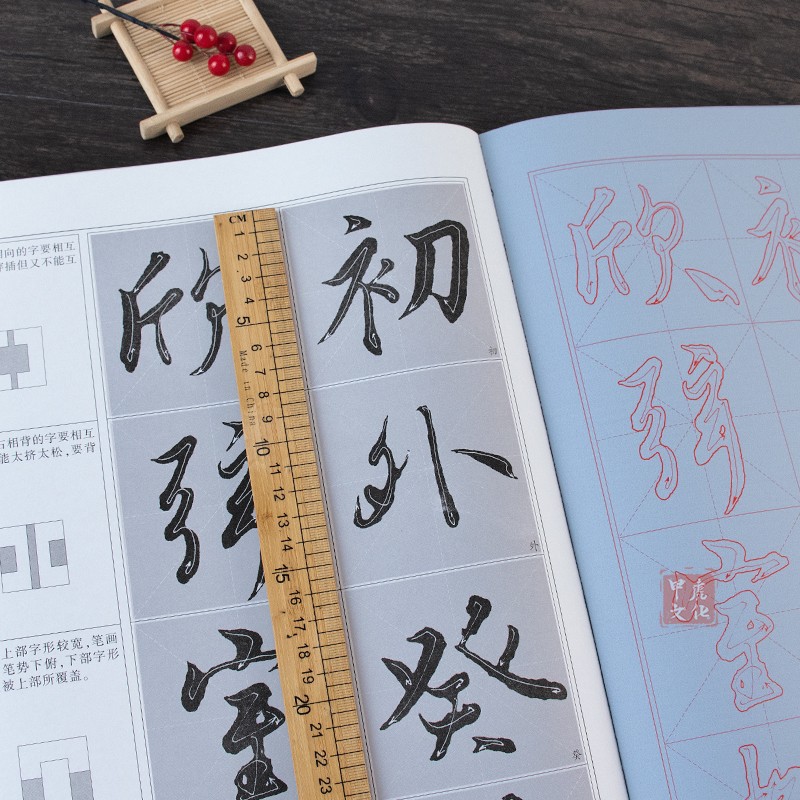 向的字要相互
插但又不能互
相背的字要相互
能太挤太松,要背
上部字形较宽,笔画
笔势下俯,下部字形
被上部所覆盖。
CM
1
2
3
4
5
6
7
8
9
10
11
12
13
14
15
16
17
18
19
20
21
22
23
Made in China
欣 初
初
外
外
室 癸
癸
欣 初
室
甲虎
文化